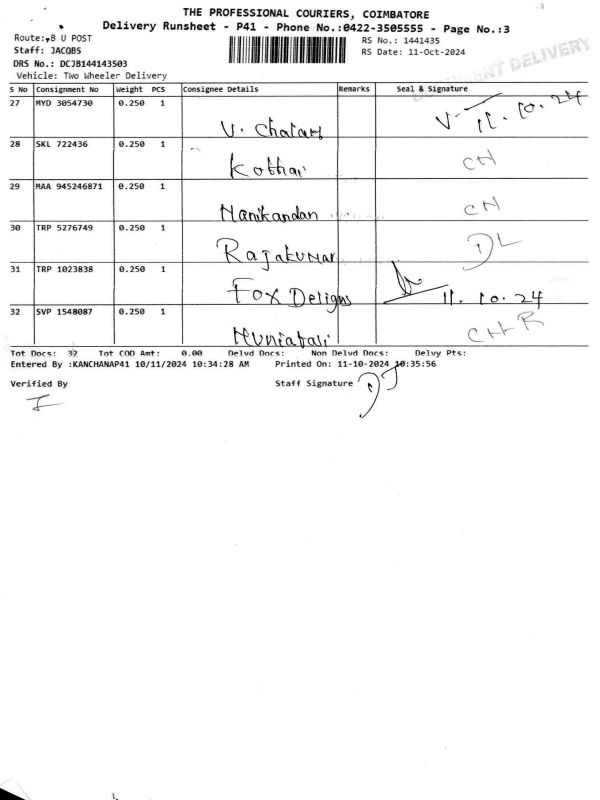 THE PROFESSIONAL COURIERS, COIMBATORE
Delivery Runsheet - P41 - Phone No.:0422-3505555 - Page No.:3
Route: B U POST
RS No.: 1441435
Staff: JACOBS
RS Date: 11-Oct-2024
DRS No.: DCJB144143503
Vehicle: Two Wheeler Delivery
DELIVERY
S No Consignment No Weight PCS Consignee Details Remarks Seal & Signature
27 MYD 3054730 0.250 1 V. 11.10.24
28 SKL 722436 0.250 1 Kothari CH
29 MAA 945246871 0.250 1 Manikandan CH
30 TRP 5276749 0.250 1 Rajakumar DL
31 TRP 1023838 0.250 1 Fox Designs 11.10.24
32 SVP 1548087 0.250 1 CHR
Tot Docs: 32 Tot COD Amt: 0.00 Delvd Docs: Non Delvd Docs: Delvy Pts:
Entered By :KANCHANAP41 10/11/2024 10:34:28 AM Printed On: 11-10-2024 10:35:56
Verified By Staff Signature